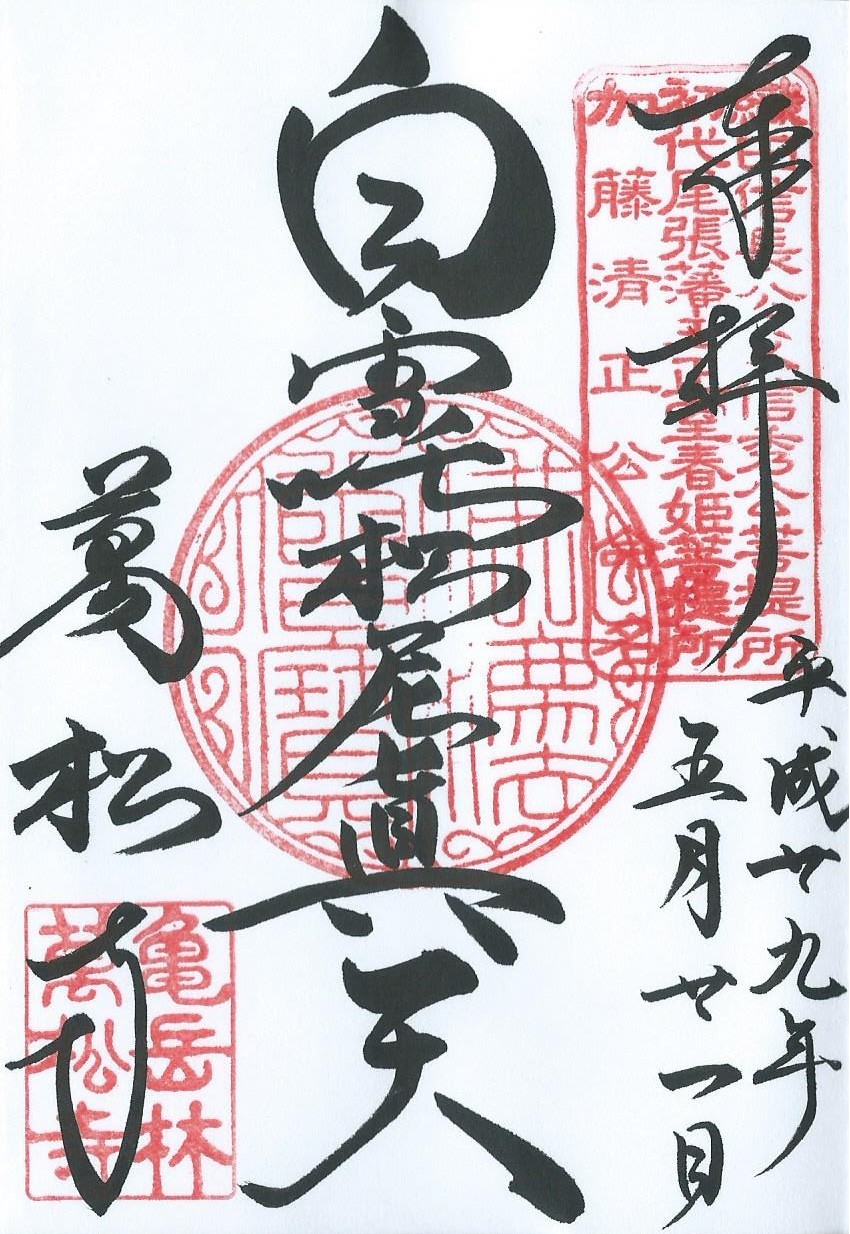 奉拝
織田信長公父信秀公菩提所
初代尾張藩主正室春姫菩提所
加藤清正公
平成廿九年
五月廿一日
白雪吒枳尼眞天
萬松寺
亀岳林
萬松寺